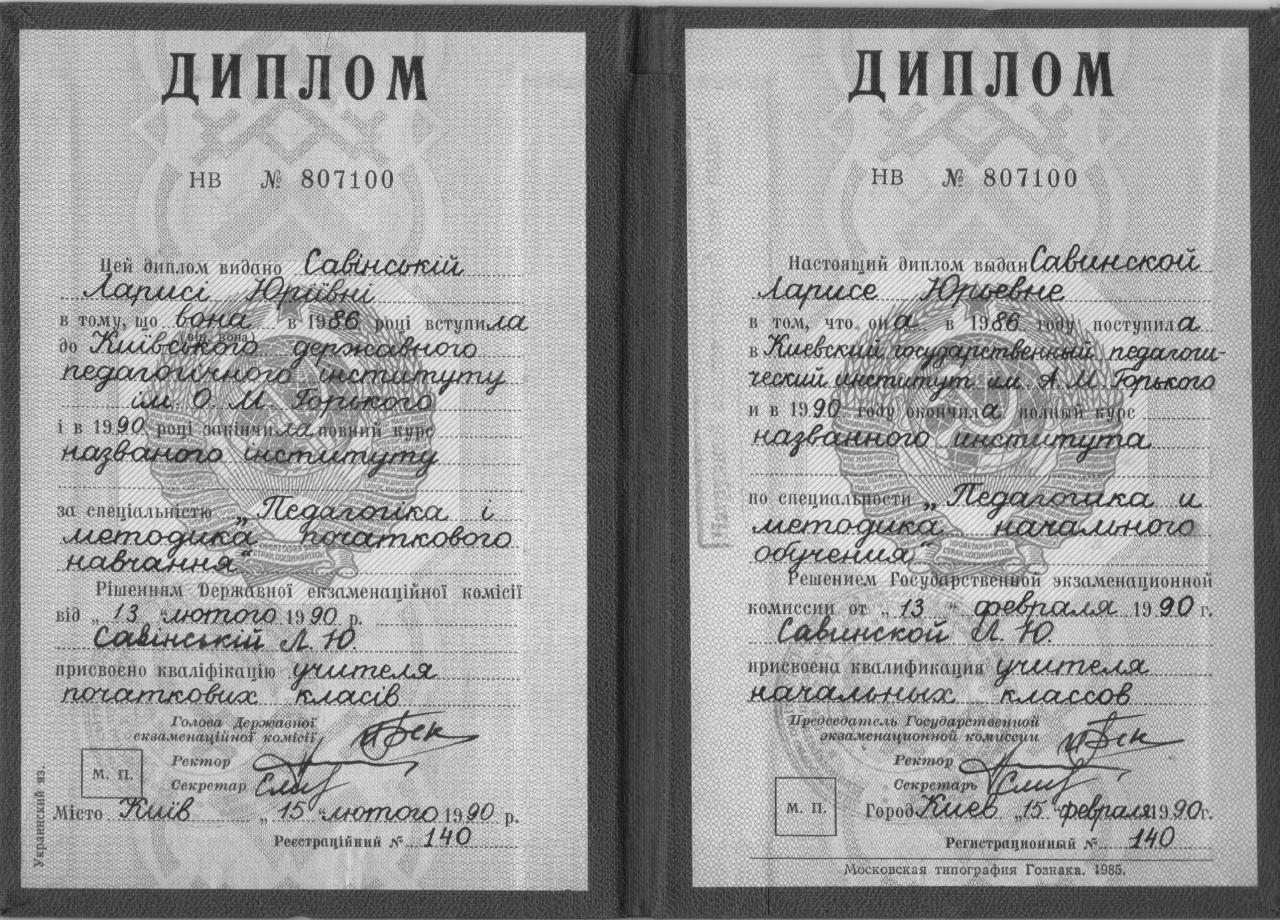 ДИПЛОМ
НВ № 807100
Цей диплом видано Савінській
Ларисі Юріївні
в тому, що вона в 1986 році вступила
(він, вона)
до Київського державного
педагогічного інституту
ім. О. М. Горького
і в 1990 році закінчила повний курс
названого інституту
за спеціальністю „Педагогіка і
методика початкового
навчання“
Рішенням Державної екзаменаційної комісії
від „13“ лютого 1990 р.
Савінській Л. Ю.
присвоєно кваліфікацію учителя
початкових класів
Голова Державної
екзаменаційної комісії
Ректор
М. П.
Секретар
Місто Київ „15“ лютого 1990 р.
Реєстраційний № 140
Украинский яз.
ДИПЛОМ
НВ № 807100
Настоящий диплом выдан Савинской
Ларисе Юрьевне
в том, что она в 1986 году поступила
в Киевский государственный педагоги-
ческий институт им. А. М. Горького
и в 1990 году окончила полный курс
названного института
по специальности „Педагогика и
методика начального
обучения“
Решением Государственной экзаменационной
комиссии от „13“ февраля 1990 г.
Савинской Л. Ю.
присвоена квалификация учителя
начальных классов
Председатель Государственной
экзаменационной комиссии
Ректор
Секретарь
М. П.
Город Киев „15“ февраля 1990 г.
Регистрационный № 140
Московская типография Гознака. 1985.